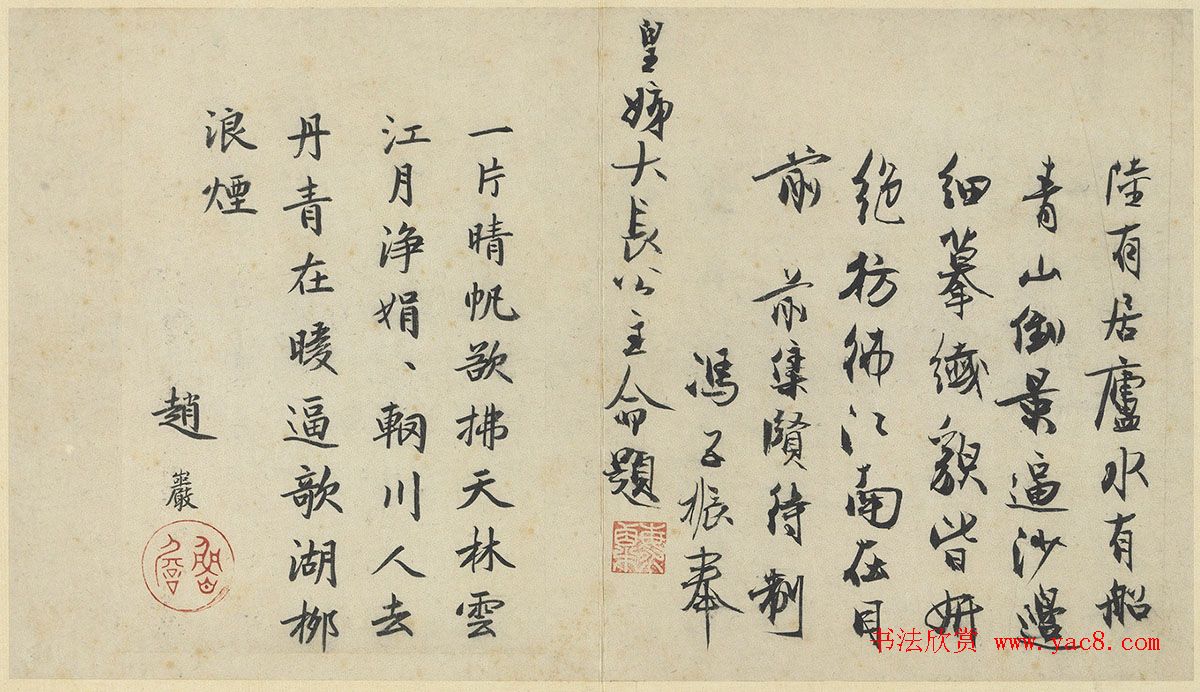 陸有居廬水有船
青山倒景逼沙邊
細摹纖貌皆妍
絶彷彿江南在目
前　前集賢待制
馮子振奉
皇姊大長公主命題
一片晴帆欲拂天林雲
江月淨娟、輞川人去
丹青在暖逼歌湖柳
浪煙
趙巖
书法欣赏 www.yac8.com